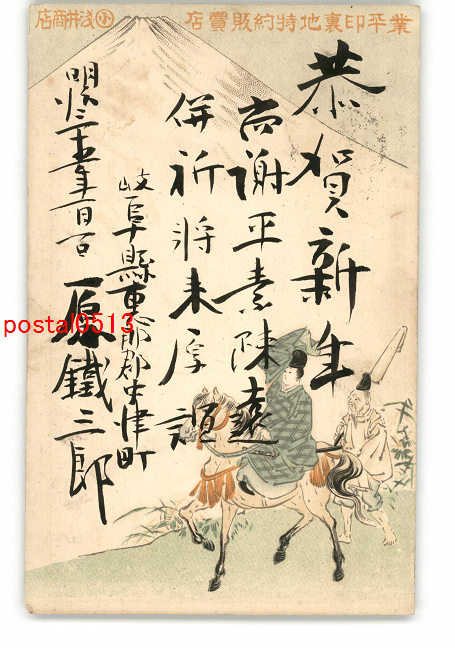 業平印裏地特約販賣店
小浅井商店
恭賀新年
尚謝平素疎遠
併祈将来厚誼
岐阜縣恵那郡中津町
明治三十五年一月一日
原鐵三郎
postal0513